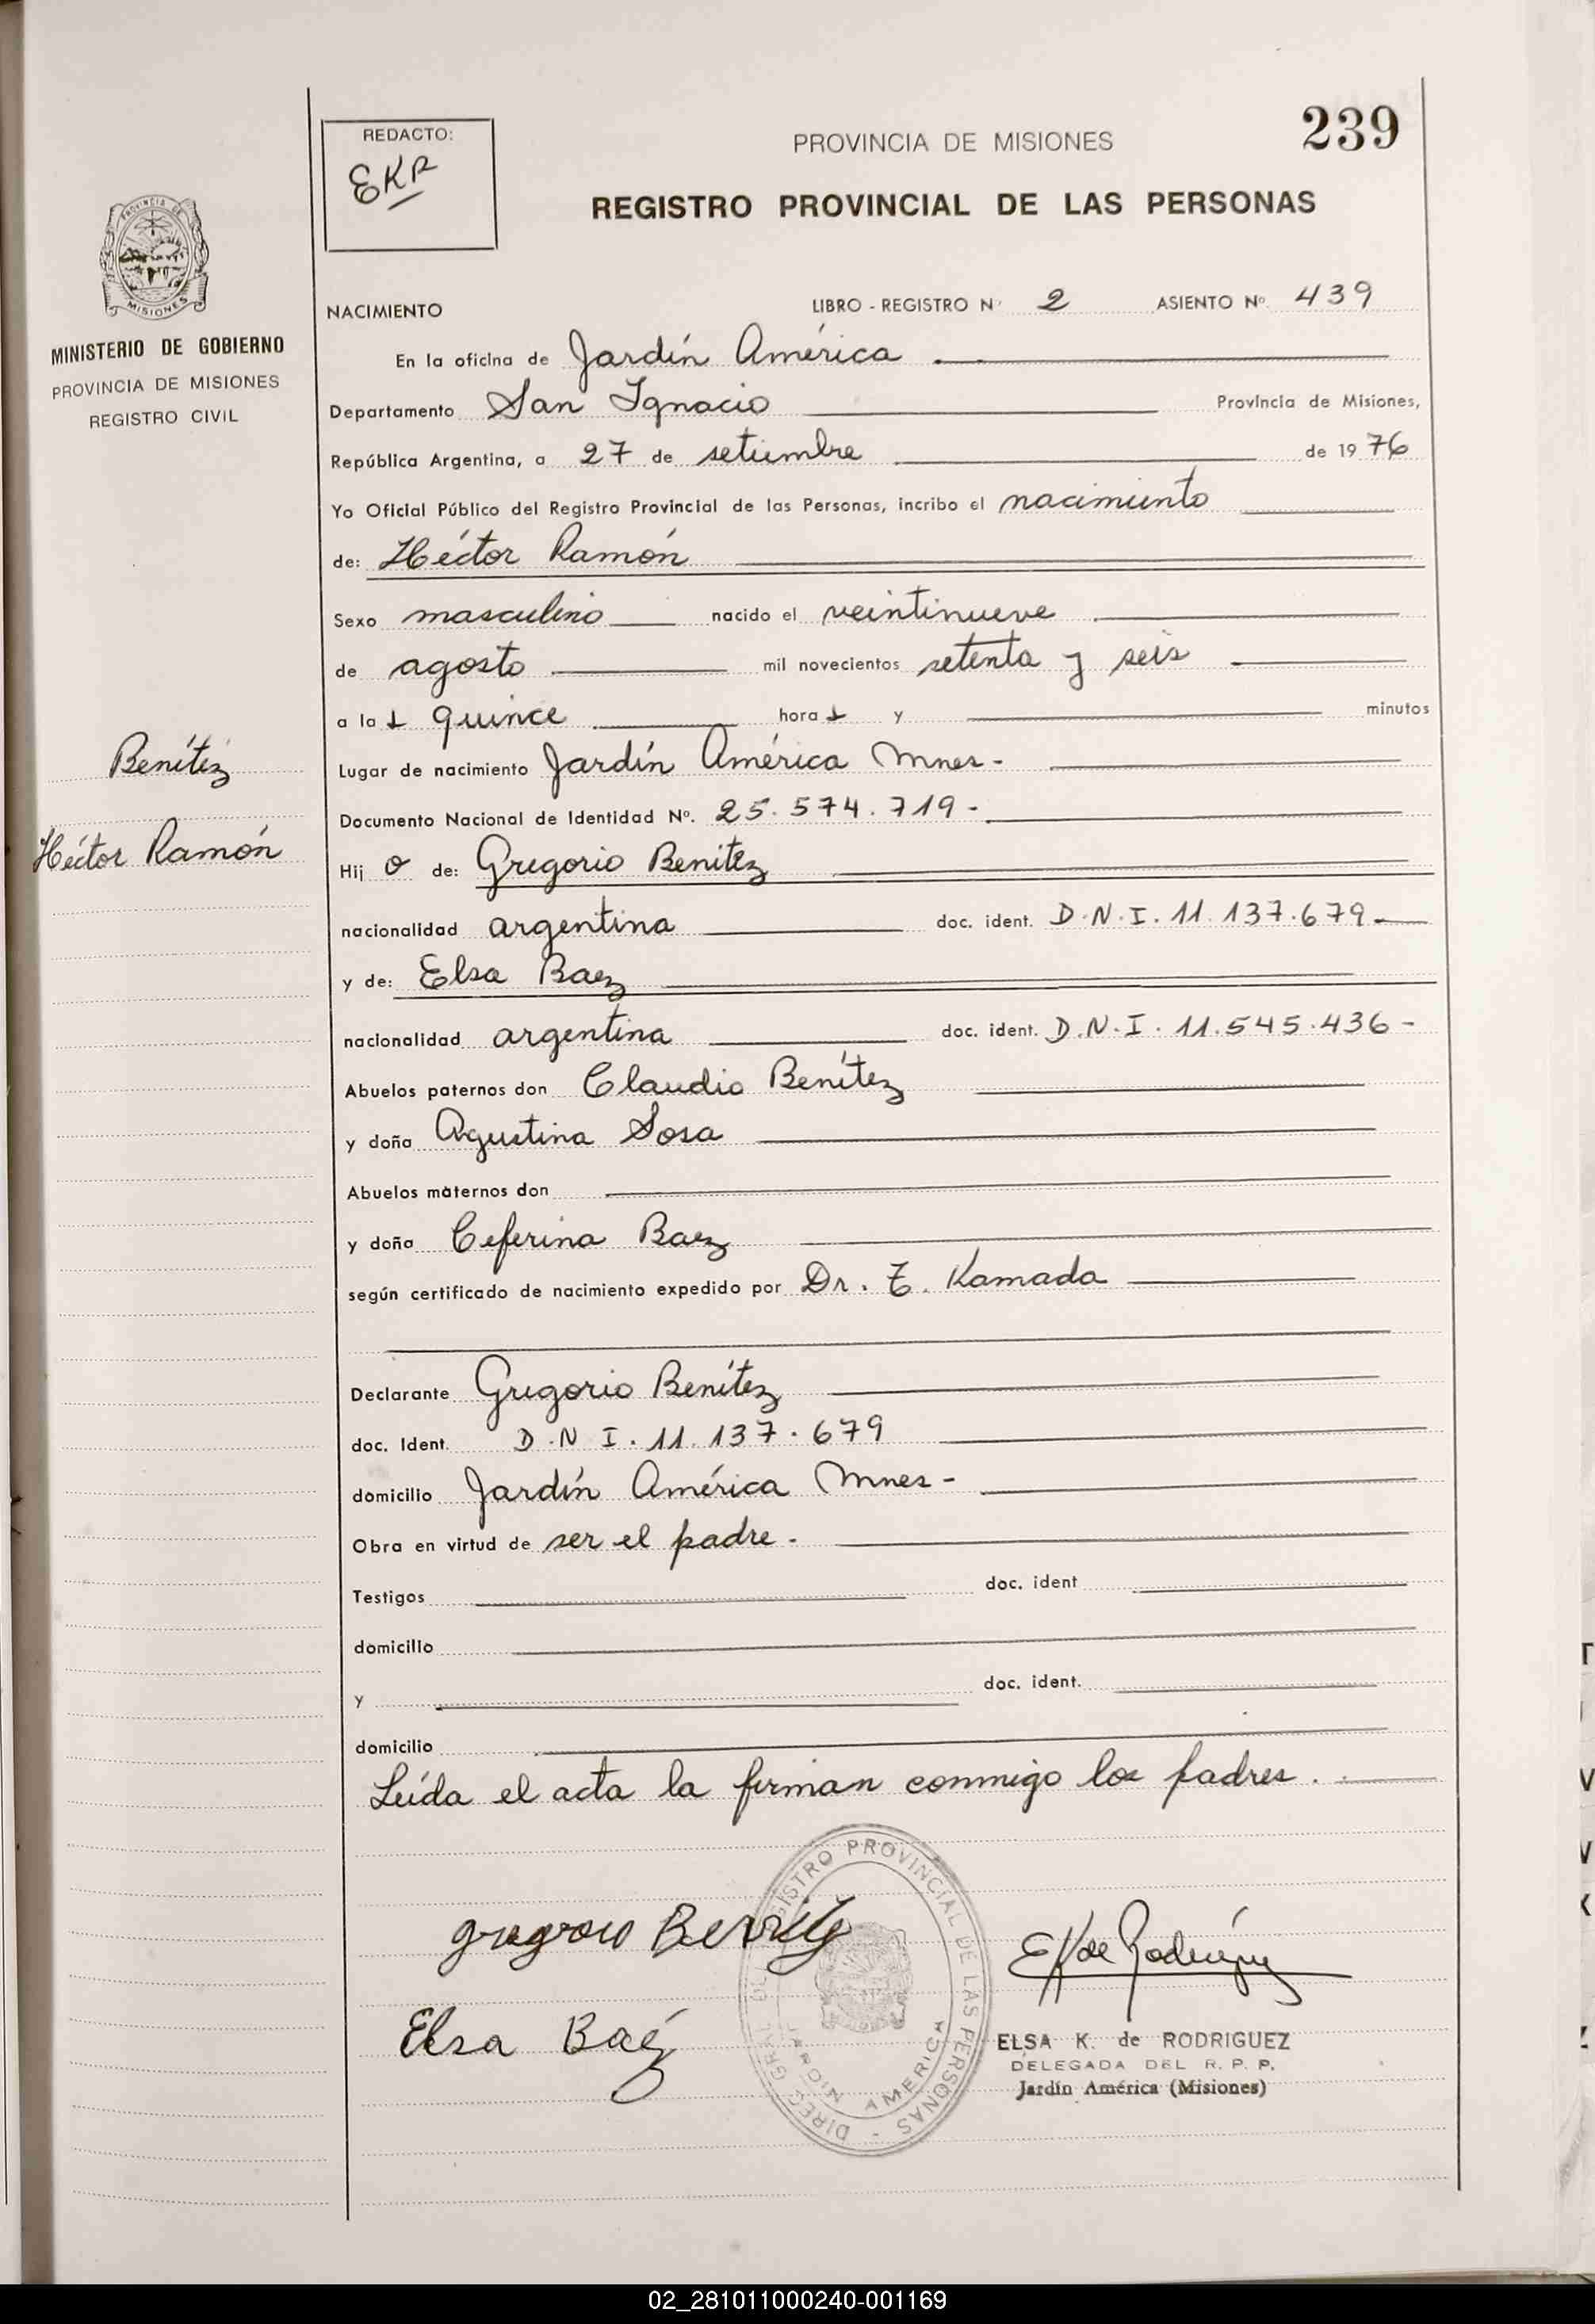 239
REDACTO:
EKR
PROVINCIA DE MISIONES
REGISTRO PROVINCIAL DE LAS PERSONAS
PROVINCIA DE
MISIONES
MINISTERIO DE GOBIERNO
PROVINCIA DE MISIONES
REGISTRO CIVIL
NACIMIENTO LIBRO - REGISTRO Nº 2 ASIENTO Nº 439
En la oficina de Jardín América
Departamento San Ignacio Provincia de Misiones,
República Argentina, a 27 de setiembre de 1976
Yo Oficial Público del Registro Provincial de las Personas, incribo el nacimiento
de: Héctor Ramón
Sexo masculino nacido el veintinueve
de agosto mil novecientos setenta y seis
a la s quince hora s y minutos
Lugar de nacimiento Jardín América Mnes-
Documento Nacional de Identidad Nº. 25.574.719-
Hij o de: Gregorio Benítez
nacionalidad argentina doc. ident. D.N.I. 11.137.679-
y de: Elsa Baez
nacionalidad argentina doc. ident. D.N.I. 11.545.436-
Abuelos paternos don Claudio Benítez
y doña Agustina Sosa
Abuelos maternos don
y doña Ceferina Baez
según certificado de nacimiento expedido por Dr. T. Kamada
Declarante Gregorio Benítez
doc. Ident. D.N I. 11.137.679
domicilio Jardín América Mnes-
Obra en virtud de ser el padre.
Testigos doc. ident
domicilio
y doc. ident.
domicilio
Leída el acta la firman conmigo los padres.
Benítez
Héctor Ramón
Elsa Baéz
DIREC. GRAL. DEL REGISTRO PROVINCIAL DE LAS PERSONAS -
JARDIN AMERICA
EK de Rodríguez
ELSA K. de RODRIGUEZ
DELEGADA DEL R. P. P.
Jardín América (Misiones)
02_281011000240-001169